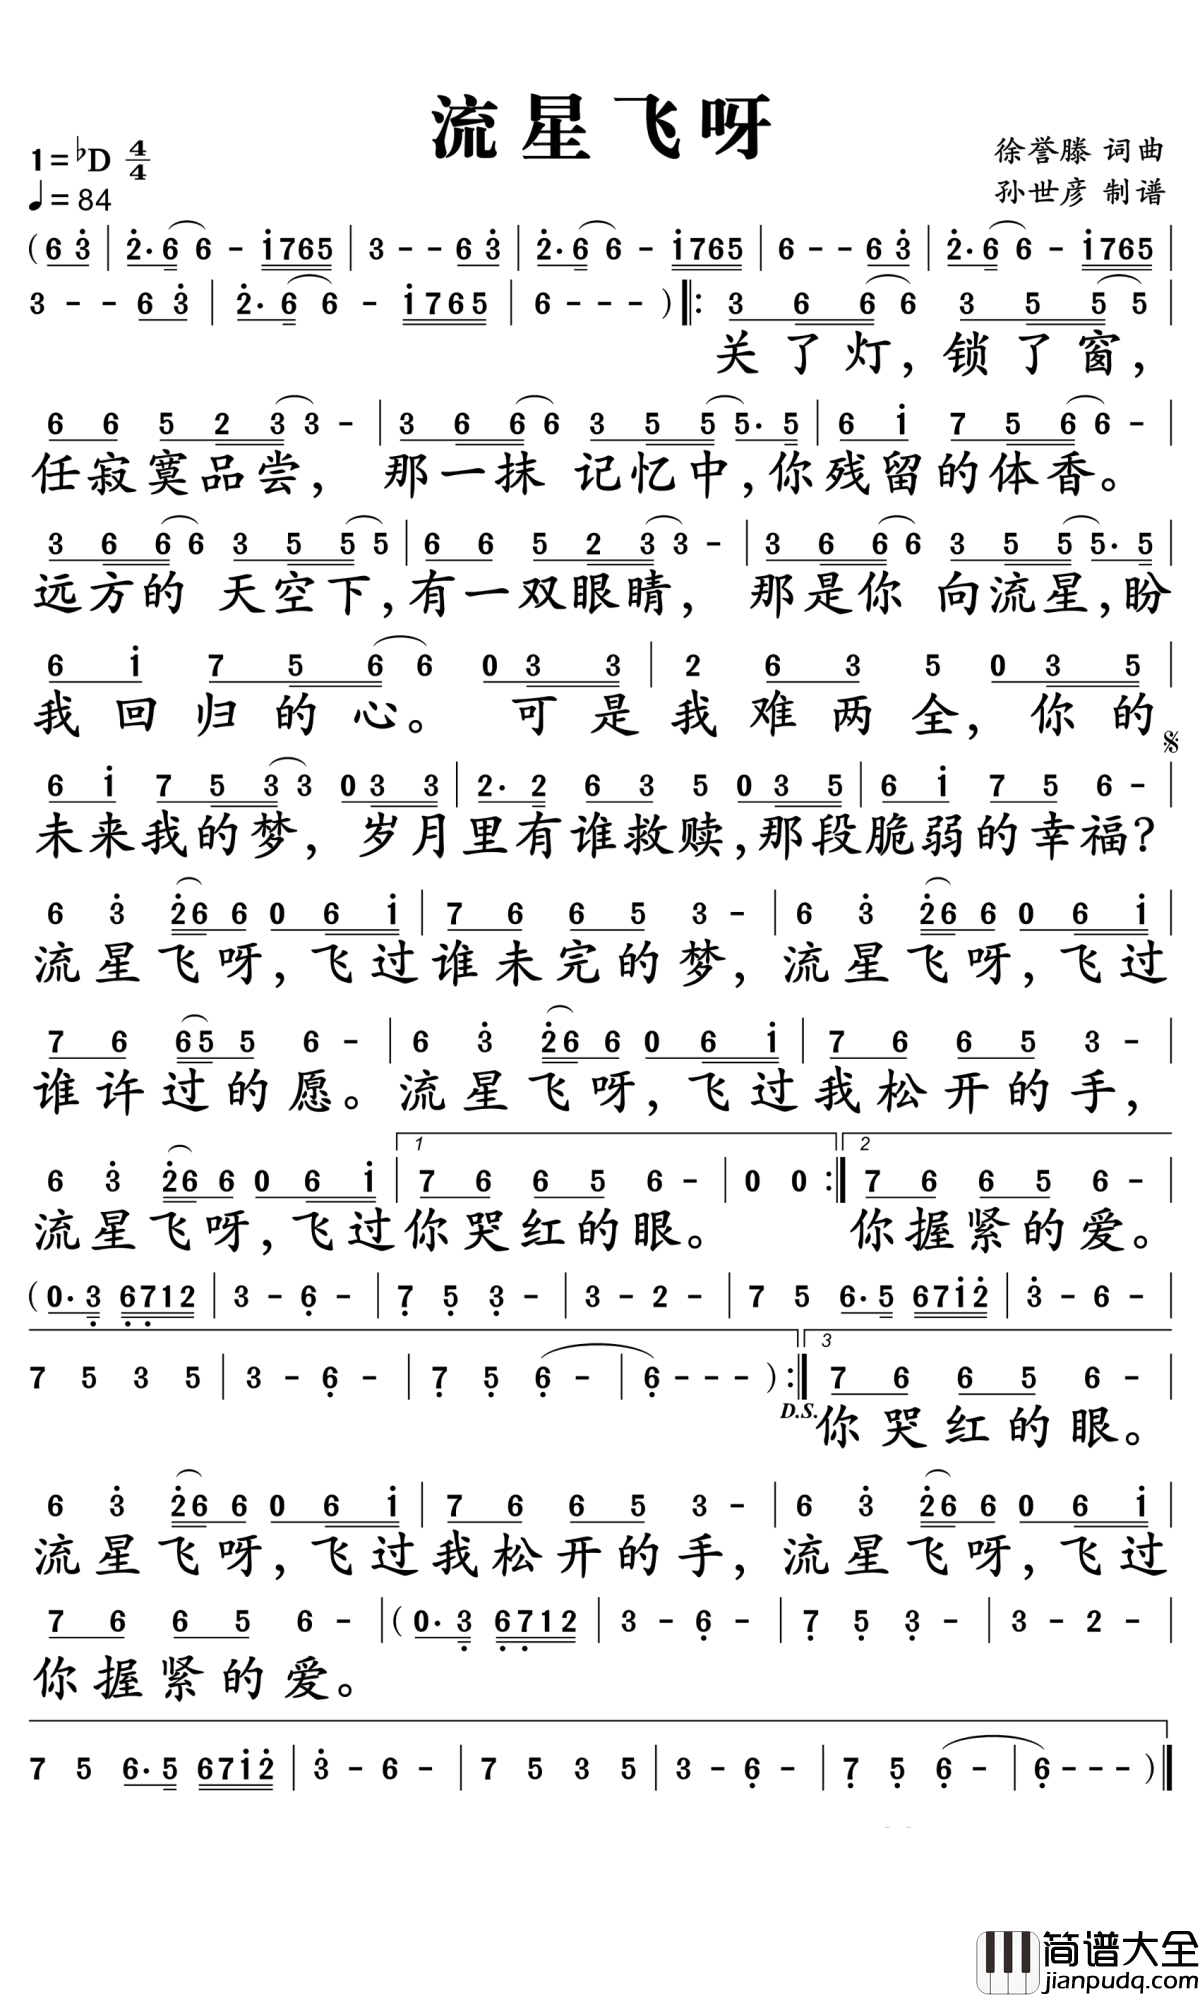 流星飞呀
1=♭D 4/4
徐誉滕 词曲
♩=84
孙世彦 制谱
(6 3̇ | 2̇· 6 6 - i̇765 | 3 - - 6 3̇ | 2̇· 6 6 - i̇765 | 6 - - 6 3̇ | 2̇· 6 6 - i̇765 |
3 - - 6 3̇ | 2̇· 6 6 - i̇765 | 6 - - - ) ‖: 3 6 6 6 3 5 5 5 |
关了灯，锁了窗，
6 6 5 2 3 3 - | 3 6 6 6 3 5 5 5· 5 | 6 i̇ 7 5 6 6 - |
任寂寞品尝， 那一抹 记忆中，你残留的体香。
3 6 6 6 3 5 5 5 | 6 6 5 2 3 3 - | 3 6 6 6 3 5 5 5· 5 |
远方的 天空下，有一双眼睛， 那是你 向流星，盼
6 i̇ 7 5 6 6 0 3 3 | 2 6 3 5 0 3 5 |
我回归的心。 可是我难两全，你的
𝄋
6 i̇ 7 5 3 3 0 3 3 | 2· 2 6 3 5 0 3 5 | 6 i̇ 7 5 6 - |
未来我的梦， 岁月里有谁救赎，那段脆弱的幸福？
6 3̇ 2̇6 6 0 6 i̇ | 7 6 6 5 3 - | 6 3̇ 2̇6 6 0 6 i̇ |
流星飞呀，飞过谁未完的梦，流星飞呀，飞过
7 6 65 5 6 - | 6 3̇ 2̇6 6 0 6 i̇ | 7 6 6 5 3 - |
谁许过的愿。流星飞呀，飞过我松开的手，
1 2
6 3̇ 2̇6 6 0 6 i̇ | 7 6 6 5 6 - | 0 0 :‖ 7 6 6 5 6 - |
流星飞呀，飞过你哭红的眼。 你握紧的爱。
(0· 3̣ 6̣7̣12 | 3 - 6̣ - | 7̣ 5̣ 3̣ - | 3 - 2 - | 7 5 6· 5 67i̇2̇ | 3̇ - 6 - |
3
7 5 3 5 | 3 - 6̣ - | 7̣ 5̣ 6̣ - | 6̣ - - - ) :‖ 7 6 6 5 6 - |
D.S. 你哭红的眼。
6 3̇ 2̇6 6 0 6 i̇ | 7 6 6 5 3 - | 6 3̇ 2̇6 6 0 6 i̇ |
流星飞呀，飞过我松开的手，流星飞呀，飞过
7 6 6 5 6 - | (0· 3̣ 6̣7̣12 | 3 - 6̣ - | 7̣ 5̣ 3̣ - | 3 - 2 - |
你握紧的爱。
7 5 6· 5 67i̇2̇ | 3̇ - 6 - | 7 5 3 5 | 3 - 6̣ - | 7̣ 5̣ 6̣ - | 6̣ - - - ) ‖
简谱大全
jianpudq.com